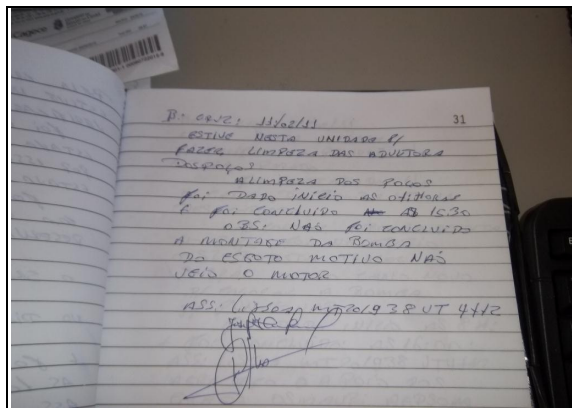 Cagece
31
B. CRUZ: 11/02/11
ESTIVE NESTA UNIDADE P/
FAZER LIMPEZA DAS ADUTORA
DOS POÇOS
A LIMPEZA DOS POÇOS
foi DADO INÍCIO AS
E foi CONCLUIDO AS 15:30
OBS: NAÕ foi CONCLUIDO
A MONTAGE DA BOMBA
DO ESGOTO MOTIVO NAÕ
VEIO O MOTOR
ASS: